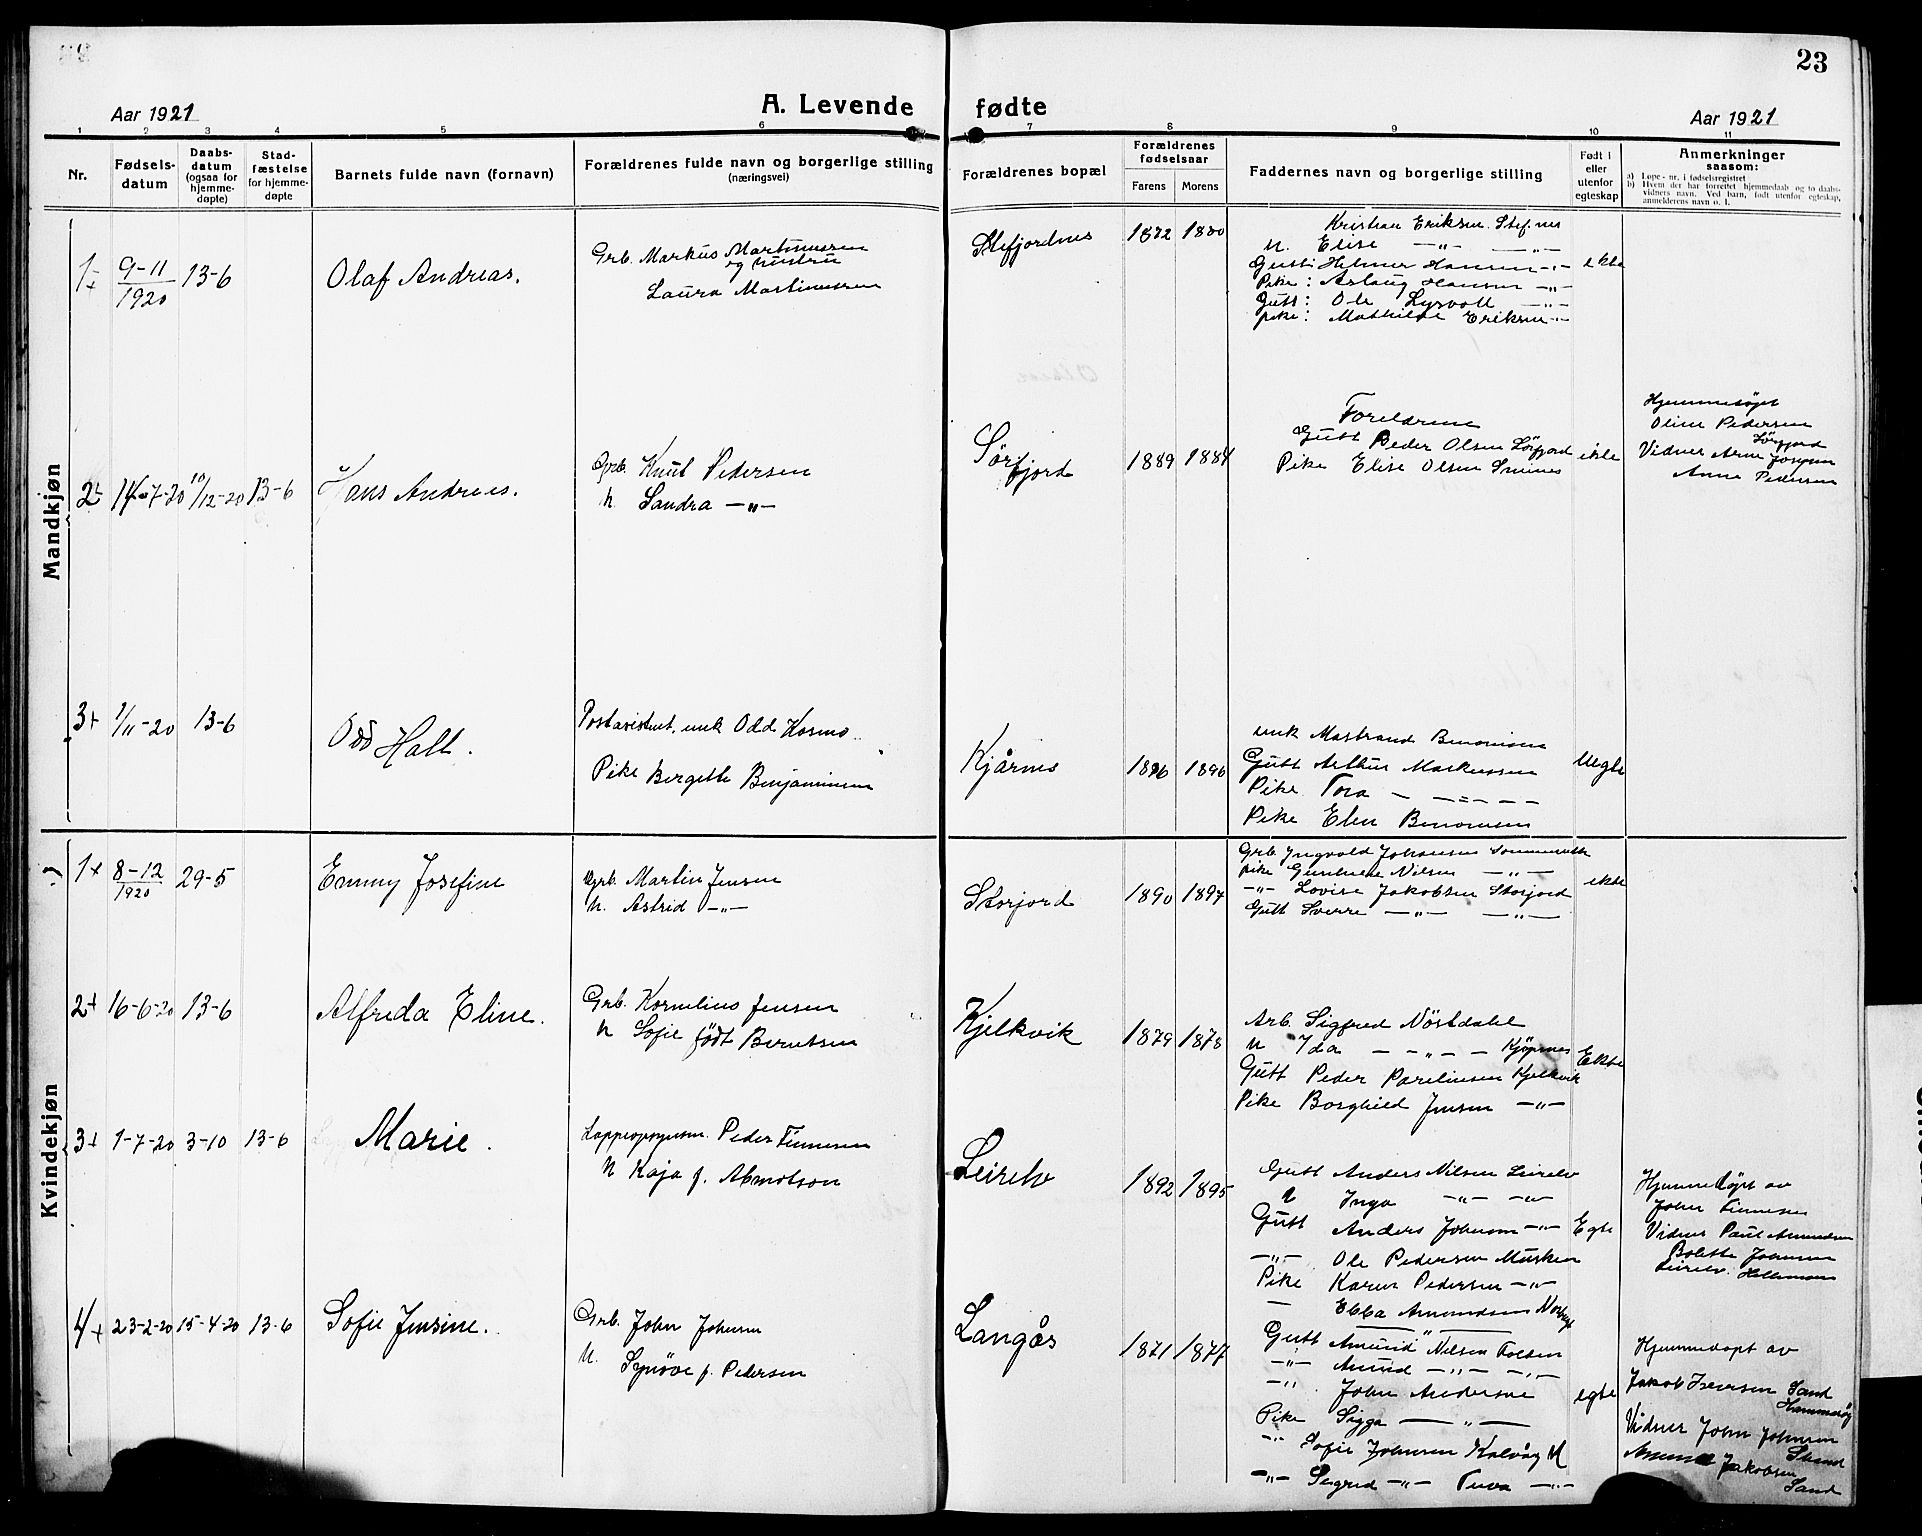 23
Aar 1921
A. Levende fødte
Aar 1921
1 2 3 4 5 6 7 8 9 10 11
Nr.
Fødsels-
datum
Daabs-
datum
(ogsaa for
hjemme-
døpte)
Stad-
fæstelse
for hjemme-
døpte
Barnets fulde navn (fornavn)
Forældrenes fulde navn og borgerlige stilling
(næringsvei)
Forældrenes bopæl
Forældrenes
fødselsaar
Farens
Morens
Faddernes navn og borgerlige stilling
Født i
eller
utenfor
egteskap
Anmerkninger
saasom:
a) Løpe-nr. i fødselsregistret
b) Hvem der har forrettet hjemmedaab og to daabs-
vidners navn. Ved barn, født utenfor egteskap,
anmelderens navn o. l.
Mandkjøn
1+
9-11
1920
13-6
Olaf Andreas.
Grb. Markus Martinussen
og hustru
Laura Martinussen
Stefjordnes
1872
1880
Kristian Eriksen Stef.nes
U. Elise —"— —"—
Gutt: Helmer Hansen -"-
Pike: Aslaug Hansen -"-
Gutt: Ole Lysvoll -"-
pike: Mathilde Eriksen -"-
ekte
2+
14-7-20
10/12-20
13-6
Hans Andreas.
Grb. Knut Pedersen
U. Sandra —"—
Sørfjord
1889
1884
Foreldrene
Gutt Peder Olsen Sørfjord
Pike Elise Olsen
ekte
Hjemmedøpt
Oline Pedersen
Sørfjord
Vidner Arne Josefsen
Anna Pedersen
3+
1/11-20
13-6
Odd Halt.
Postasistent, unk Odd Kosmo
Pike Bergitte Benjaminsen
Kjårnes
1896
1896
unk Mastrand Benonisen
Gutt Arthur Markussen
Pike Tora — —"— —
Pike Elen Benonisen
Uegte
Kvindekjøn
1+
8-12
1920
29-5
Emmy Josefine
Grb. Martin Jensen
U. Astrid —"—
Storjord
1890
1897
Grb. Ingvald Johansen
pike Nilsen —"—
-"- Lovise Jakobsen Storjord
Gutt Sverre —"— —"—
ekte
2+
16-6-20
13-6
Alfreda Eline.
Grb. Kornelius Jensen
U Sofie født Berntsen
Kjelkvik
1879
1878
Arb. Sigfred Nøstdahl
U Ida — —"— — Kjøpnes
Gutt Peder Parelinsen Kjelkvik
Pike Borghild Jensen —"—
Ekte
3+
1-7-20
3-10
13-6
Marie.
Lappeopsynsm. Peder Finnesen
U Kaja f. Abmotson
Leirelv
1892
1895
Gutt Anders Nilsen Leirelv
U Inga —"— —"—
Gutt Anders Johnsen —"—
—"— Ole Pedersen Musken
Pike Karen Pedersen —"—
— Ebba Amundsen
Egte
Hjemmedøpt av
John Finnesen
Vidner Paul Amundsen
Bolette Johnsen
Leirelv.
4+
23-2-20
15-4-20
13-6
Sofie Jensine.
Grb. John Johnsen
U. Synøve f. Pedersen
Langås
1871
1877
Gutt Amund Nilsen
—"— Amund —"— —"—
—"— John Andersen
Pike Sigga —"—
—"— Sofie Johnsen Kalvåg
—"— Sigrid —"— —"—
egte
Hjemmedøpt av
Jakob Iversen Sand
Hammerøy
Vidner John Johnsen
Sand
Amund Jakobsen
Sand